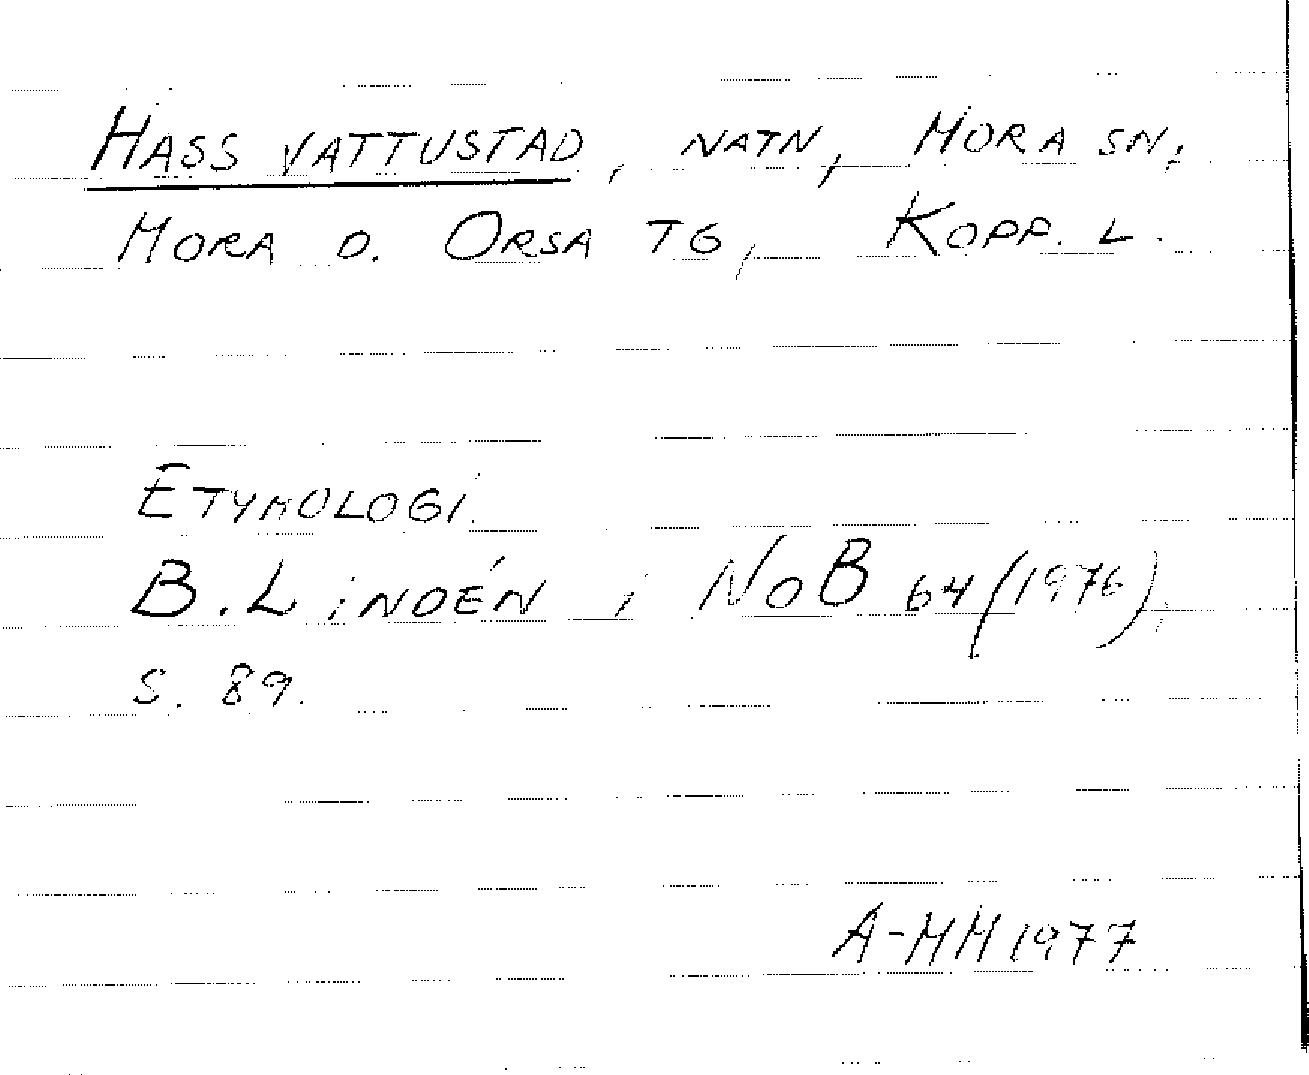 HASS VATTUSTAD, NATN, MORA SN,
MORA O. ORSA TG, KOPP. L.
ETYMOLOGI.
B. LINDÉN i NoB 64 (1976),
S. 89.
A-MH 1977